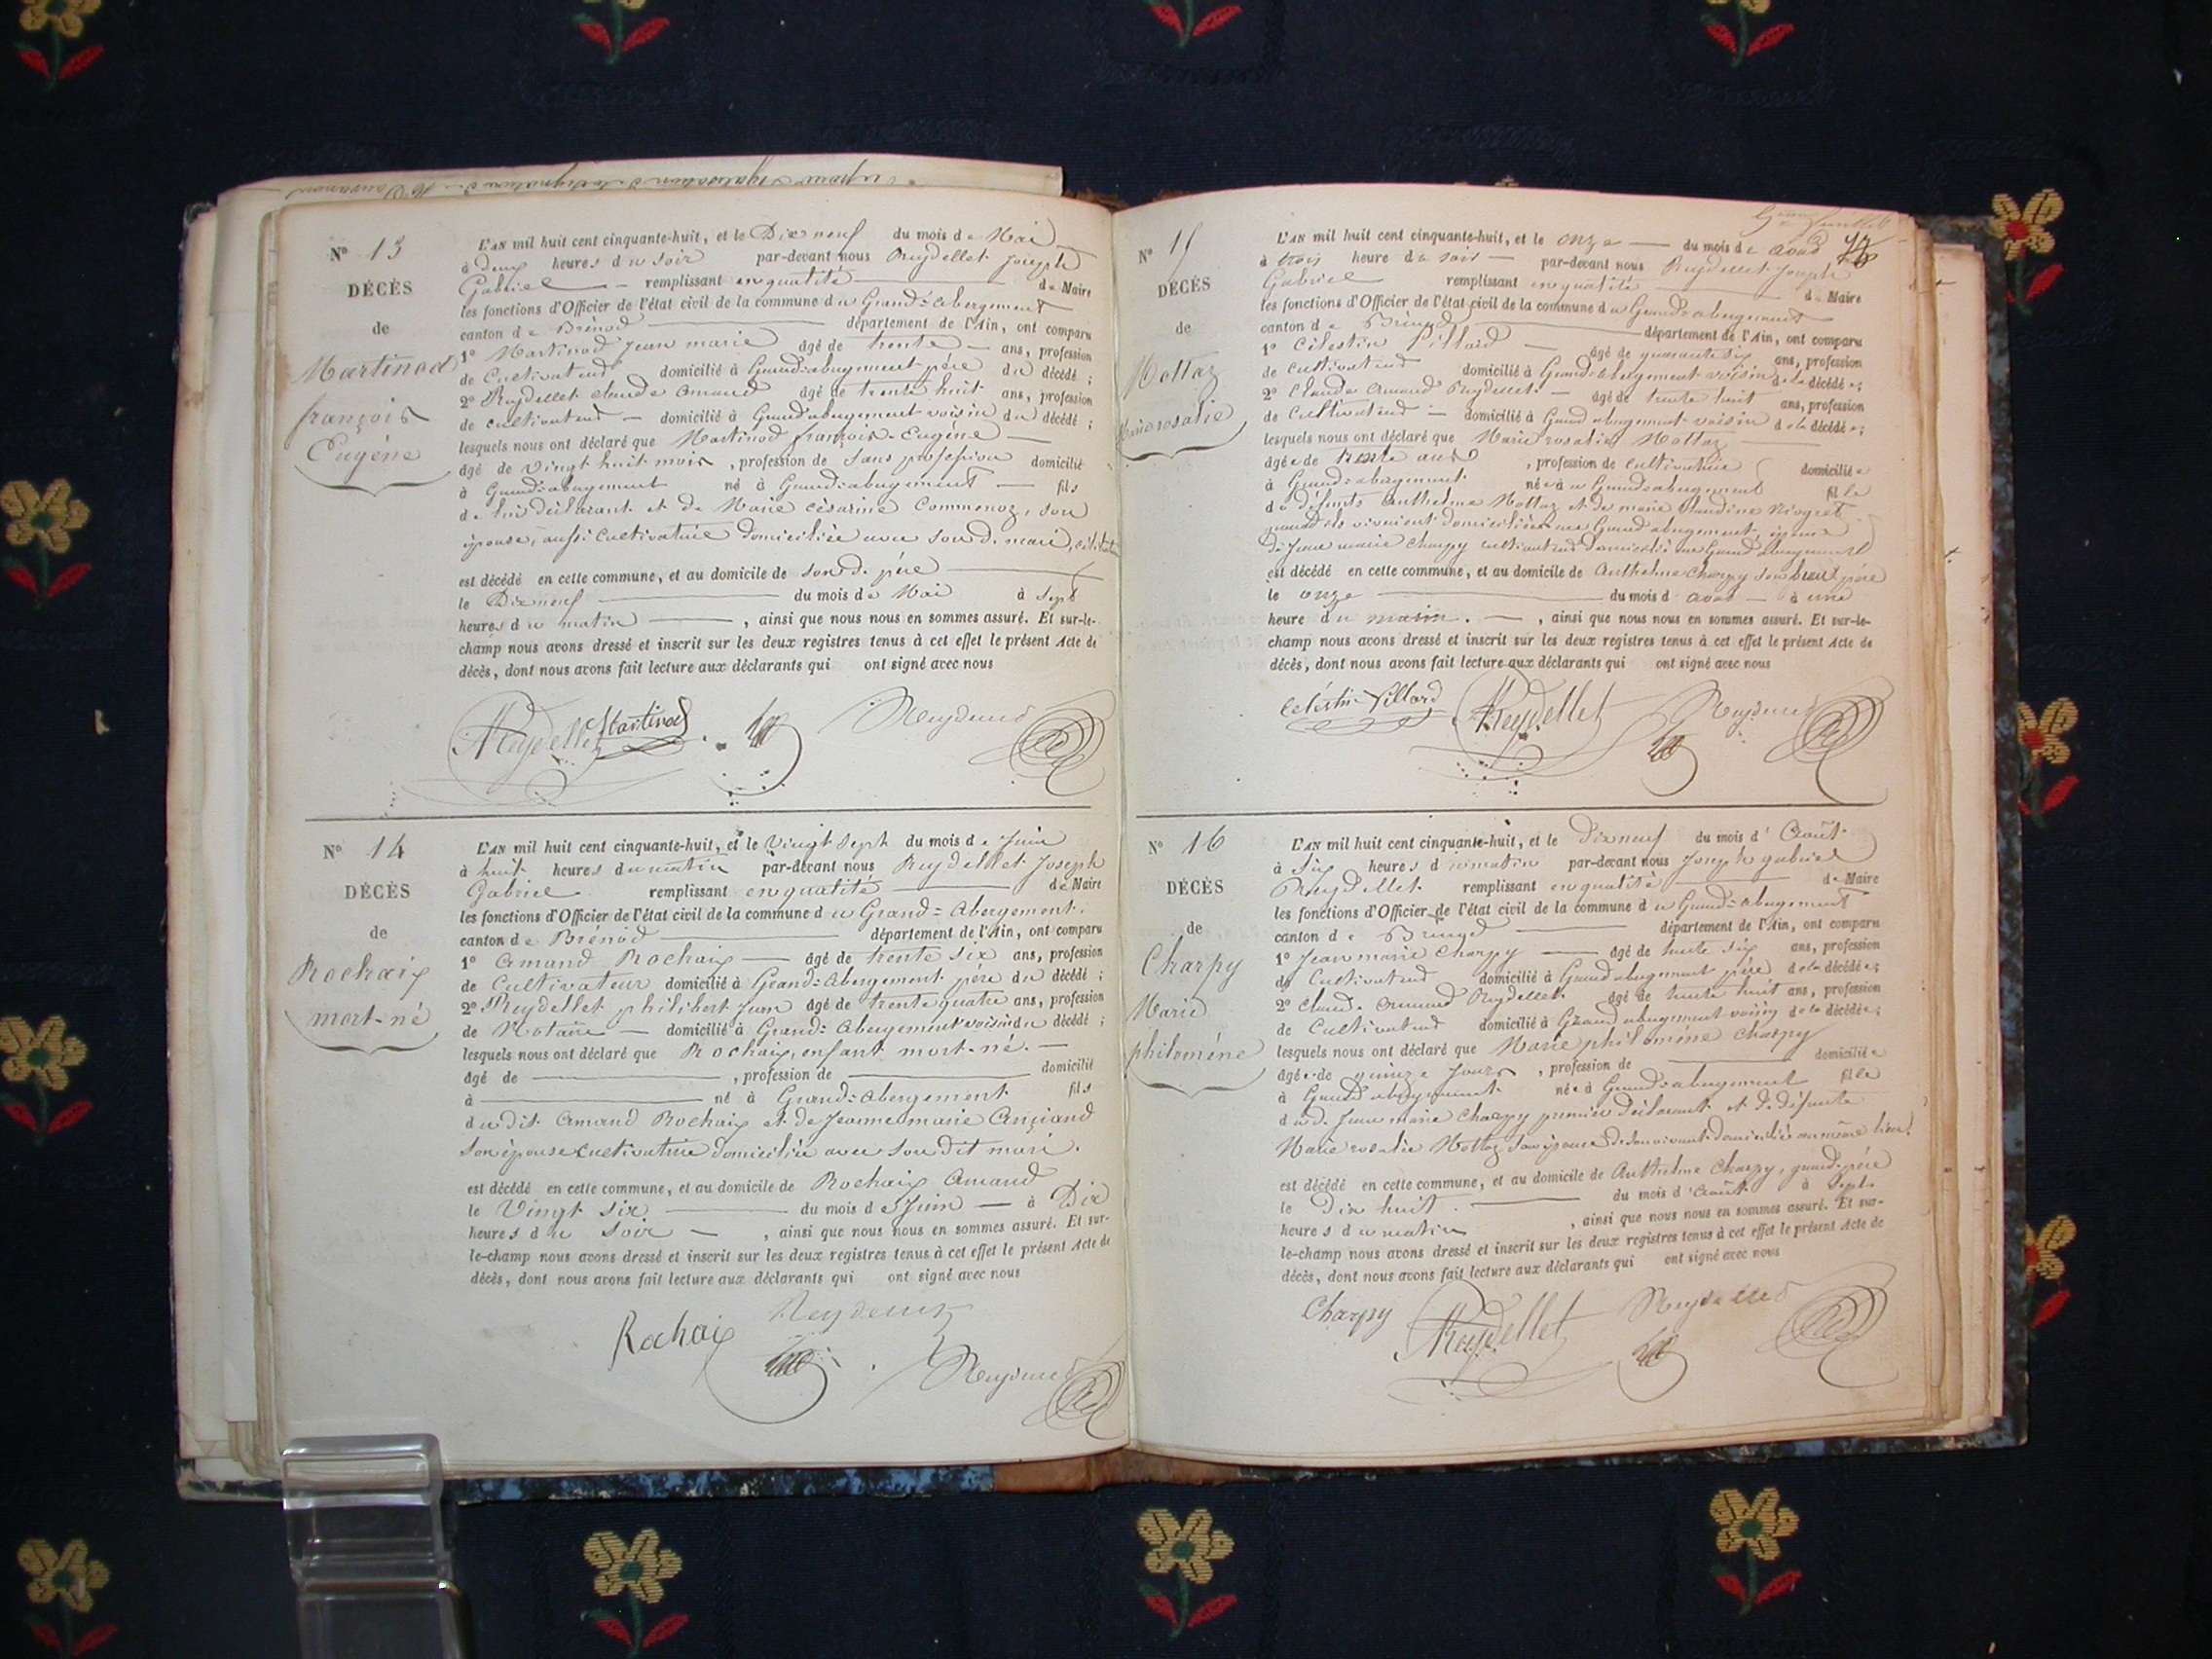 N° 13
DÉCÈS
de
Martinod
françois
Eugène
L'AN mil huit cent cinquante-huit, et le Dix neuf du mois de Mai
à deux heures du soir par-devant nous Reydellet Joseph
Gabriel remplissant en qualité de Maire
les fonctions d'Officier de l'état civil de la commune du Grand=Abergement
canton de Brénod département de l'Ain, ont comparu
1° Martinod Jean marie âgé de trente ans, profession
de Cultivateur domicilié à Grand=abergement père du décédé ;
2° Reydellet claude Amand âgé de trente huit ans, profession
de cultivateur domicilié à Grand abergement voisin du décédé ;
lesquels nous ont déclaré que Martinod françois-Eugène
âgé de vingt huit mois, profession de sans profession domicilié
à Grand=abergement né à Grand=abergement fils
de lui déclarant et de Marie césarine Commenoz, son
épouse, aussi cultivatrice domiciliée avec son d. mari,
est décédé en cette commune, et au domicile de son d. père
le Dix neuf du mois de Mai à Sept
heures du matin, ainsi que nous nous en sommes assuré. Et sur-le-
champ nous avons dressé et inscrit sur les deux registres tenus à cet effet le présent Acte de
décès, dont nous avons fait lecture aux déclarants qui ont signé avec nous
Reydellet Martinod Reydellet
N° 14
DÉCÈS
de
Rochaix
mort-né
L'AN mil huit cent cinquante-huit, et le Vingt Sept du mois de Juin
à huit heures du matin par-devant nous Reydellet Joseph
Gabriel remplissant en qualité de Maire
les fonctions d'Officier de l'état civil de la commune du Grand=Abergement.
canton de Brénod département de l'Ain, ont comparu
1° Amand Rochaix âgé de trente six ans, profession
de Cultivateur domicilié à Grand=Abergement père du décédé ;
2° Reydellet philibert Jean âgé de trente quatre ans, profession
de Notaire domicilié à Grand=Abergement voisin du décédé ;
lesquels nous ont déclaré que Rochaix, enfant mort-né.
âgé de , profession de domicilié
à né à Grand=Abergement fils
du dit Amand Rochaix et de Jeanne marie Ançiand
son épouse cultivatrice domiciliée avec son dit mari.
est décédé en cette commune, et au domicile de Rochaix Amand
le Vingt Six du mois de Juin à Dix
heures du soir, ainsi que nous nous en sommes assuré. Et sur-
le-champ nous avons dressé et inscrit sur les deux registres tenus à cet effet le présent Acte de
décès, dont nous avons fait lecture aux déclarants qui ont signé avec nous
Rochaix Reydellet
Reydellet
N° 15
DÉCÈS
de
Mottaz
Marie rosalie
L'AN mil huit cent cinquante-huit, et le onze du mois de aout
à trois heure du soir par-devant nous Reydellet Joseph
Gabriel remplissant en qualité de Maire
les fonctions d'Officier de l'état civil de la commune du Grand=abergement
canton de Brénod département de l'Ain, ont comparu
1° Célestin Pillard âgé de quarante six ans, profession
de cultivateur domicilié à Grand=abergement voisin de la décédée ;
2° Claude Amand Reydellet âgé de trente huit ans, profession
de Cultivateur domicilié à Grand abergement voisin de la décédée ;
lesquels nous ont déclaré que Marie rosalie Mottaz
âgée de trente ans, profession de cultivatrice domiciliée
à Grand=abergement née à Grand=abergement fille
de défunts Anthelme Mottaz et de marie Claudine
quand ils vivaient domiciliés au Grand abergement, épouse
de Jean marie Charpy cultivateur domicilié au Grand abergement
est décédé en cette commune, et au domicile de Anthelme Charpy son beau père
le onze du mois d aout à une
heure du matin, ainsi que nous nous en sommes assuré. Et sur-le-
champ nous avons dressé et inscrit sur les deux registres tenus à cet effet le présent Acte de
décès, dont nous avons fait lecture aux déclarants qui ont signé avec nous
Celéstin Pillard Reydellet Reydellet
N° 16
DÉCÈS
de
Charpy
Marie
philomène
L'AN mil huit cent cinquante-huit, et le Dix neuf du mois d' Août
à Six heures du matin par-devant nous Joseph gabriel
Reydellet remplissant en qualité de Maire
les fonctions d'Officier de l'état civil de la commune du Grand=abergement
canton de Brénod département de l'Ain, ont comparu
1° Jean marie Charpy âgé de trente six ans, profession
de Cultivateur domicilié à Grand abergement père de la décédée ;
2° Claude Amand Reydellet âgé de trente huit ans, profession
de Cultivateur domicilié à Grand abergement voisin de la décédée ;
lesquels nous ont déclaré que Marie philomène Charpy
âgée de quinze Jours, profession de domiciliée
à Grand abergement née à Grand=abergement fille
du d. Jean marie Charpy premier déclarant et de défunte
Marie rosalie Mottaz son épouse de son vivant domiciliée au même lieu.
est décédé en cette commune, et au domicile de Anthelme Charpy, grand-père
le Dix huit du mois d' Août à Sept
heures du matin, ainsi que nous nous en sommes assuré. Et sur-
le-champ nous avons dressé et inscrit sur les deux registres tenus à cet effet le présent Acte de
décès, dont nous avons fait lecture aux déclarants qui ont signé avec nous
Charpy Reydellet Reydellet